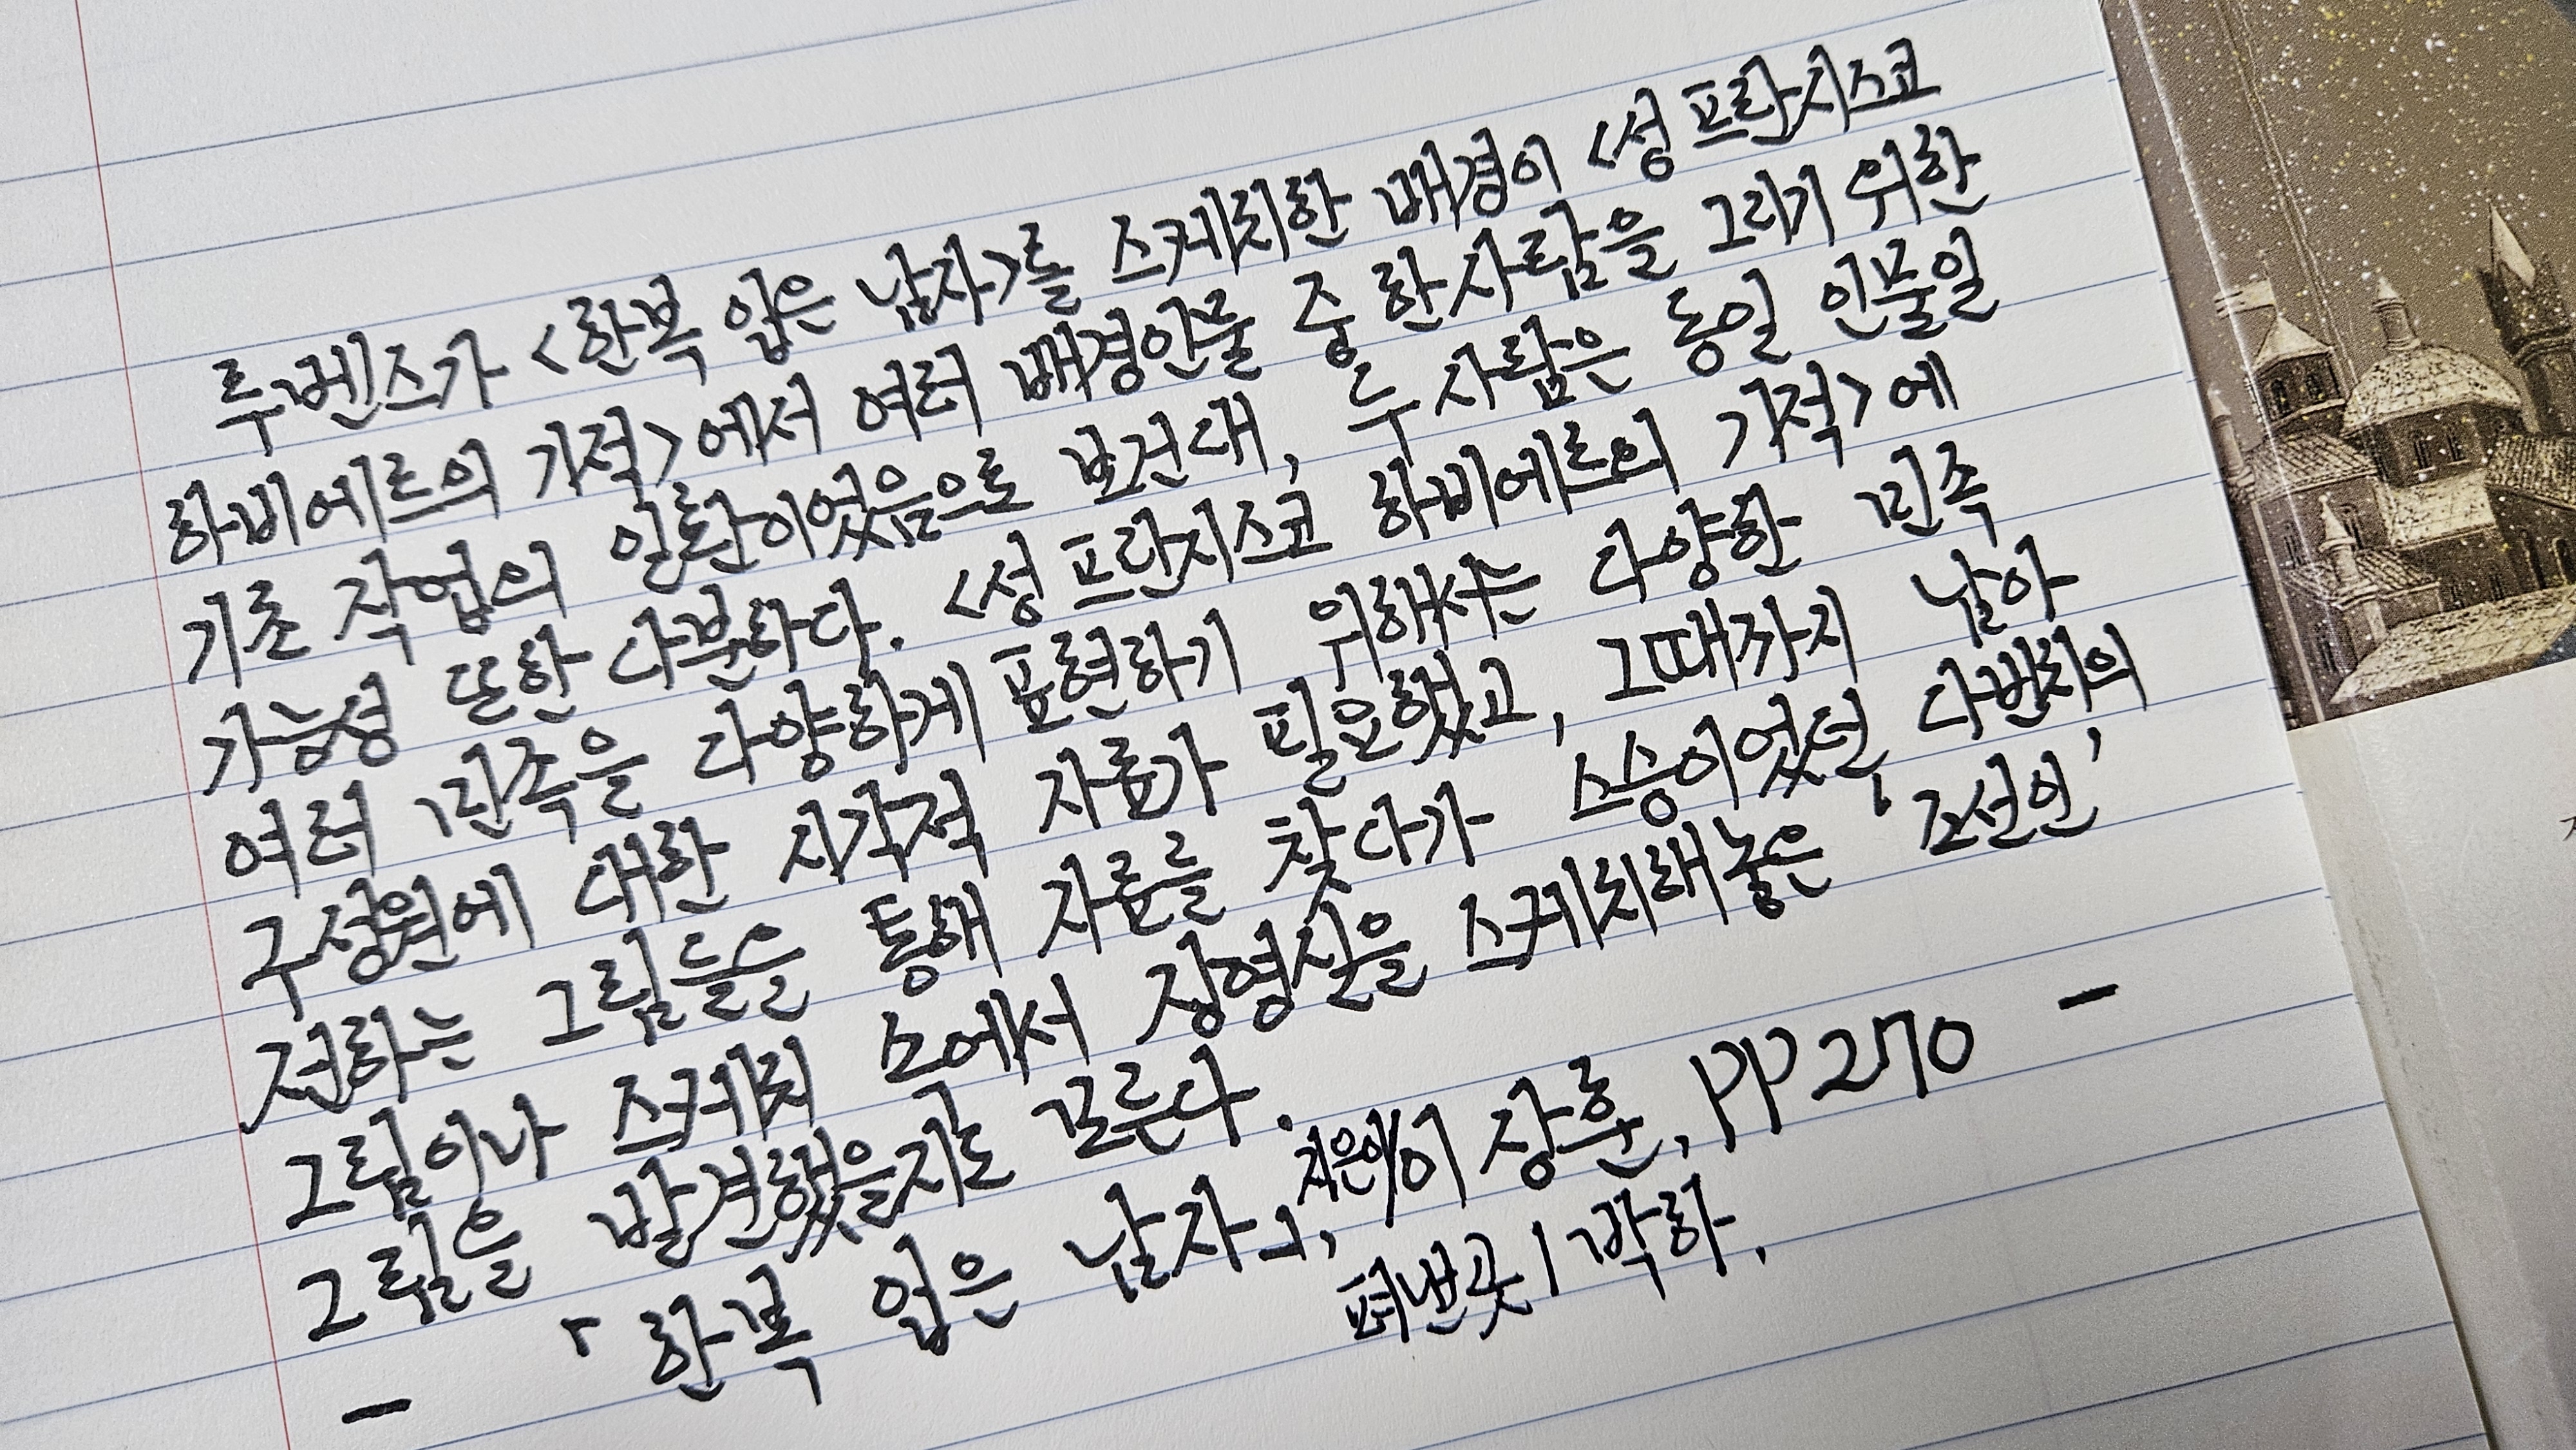 루벤스가 <한복 입은 남자>를 스케치한 배경이 <성 프란치스코
하비에르의 기적>에서 여러 배경인물 중 한사람을 그리기 위한
기초 작업의 일환이었음으로 보건대, 두 사람은 동일 인물일
가능성 또한 다분하다. <성 프란치스코 하비에르의 기적>에
여러 민족을 다양하게 표현하기 위해서는 다양한 민족
구성원에 대한 시각적 자료가 필요했고, 그때까지 남아
전하는 그림들을 통해 자료를 찾다가 스승이었던 다빈치의
그림이나 스케치 속에서 장영실을 스케치해놓은 '조선인'
그림을 발견했을지도 모른다.
- 「한복 입은 남자」, 지은이/이 상훈, PP 270 -
펴낸곳 | 박하.